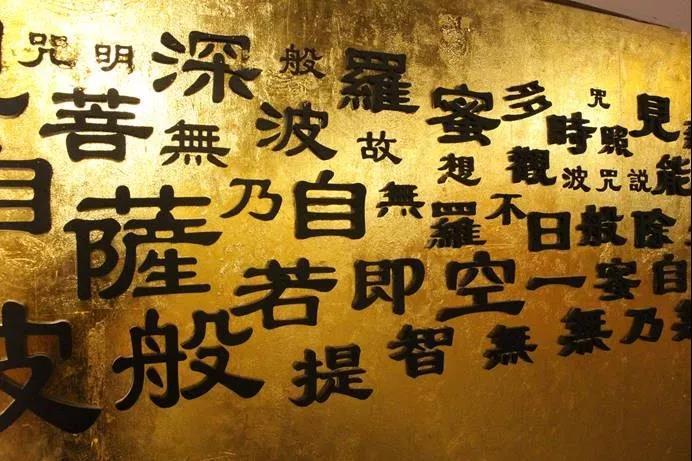 咒明深般羅蜜多咒見
菩無波故想觀時照能
自薩乃自無羅不波咒説
若即空日般除
一蜜自
波般提智無無乃無